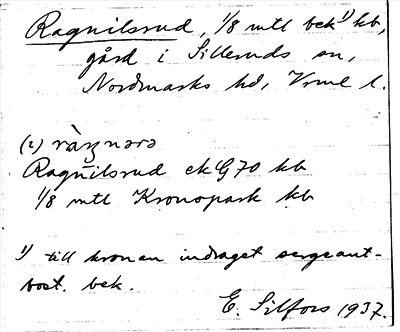 Ragnilsrud, 1/8 mtl bek¹⁾ kb,
gård i Silleruds sn,
Nordmarks hd, Vrml l.
(2)
Ragnilsrud ek G 70 kb
1/8 mtl Kronopark kb
1) till kronan indraget sergeant-
bost. bek.
E. Silfors 1937.